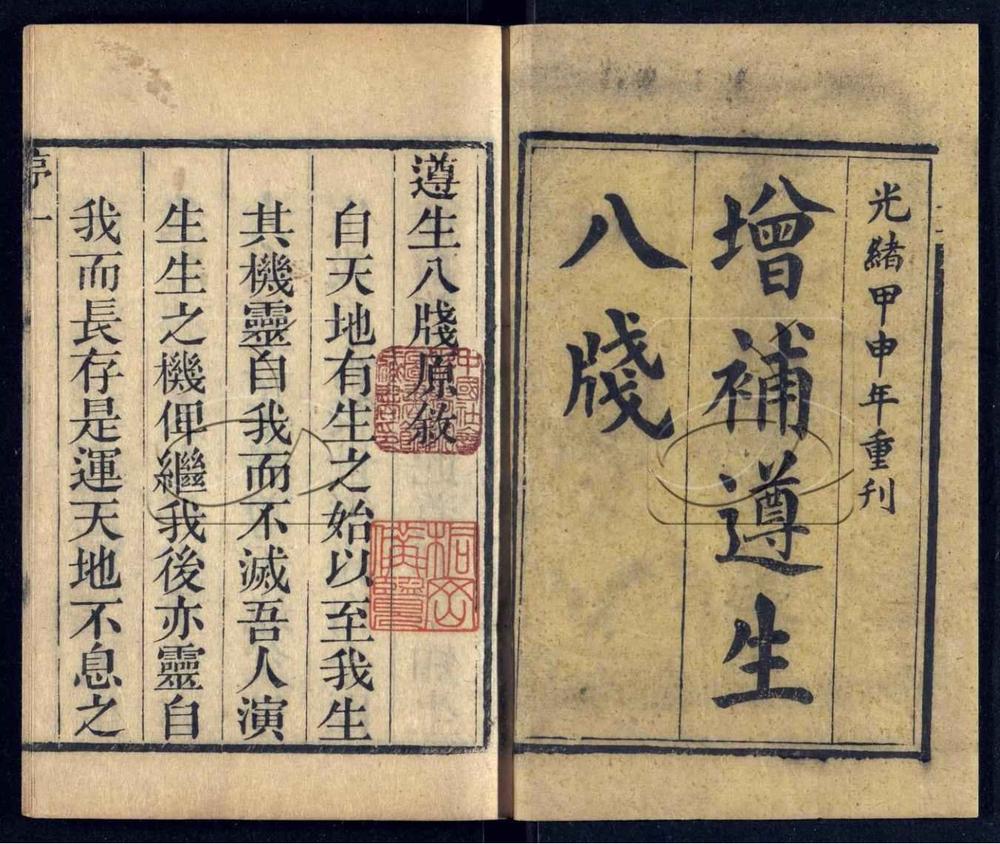 光緒甲申年重刊
增補遵生
八牋
遵生八牋原敘
自天地有生之始以至我生
其機靈自我而不滅吾人演
生生之機俾繼我後亦靈自
我而長存是運天地不息之
序一